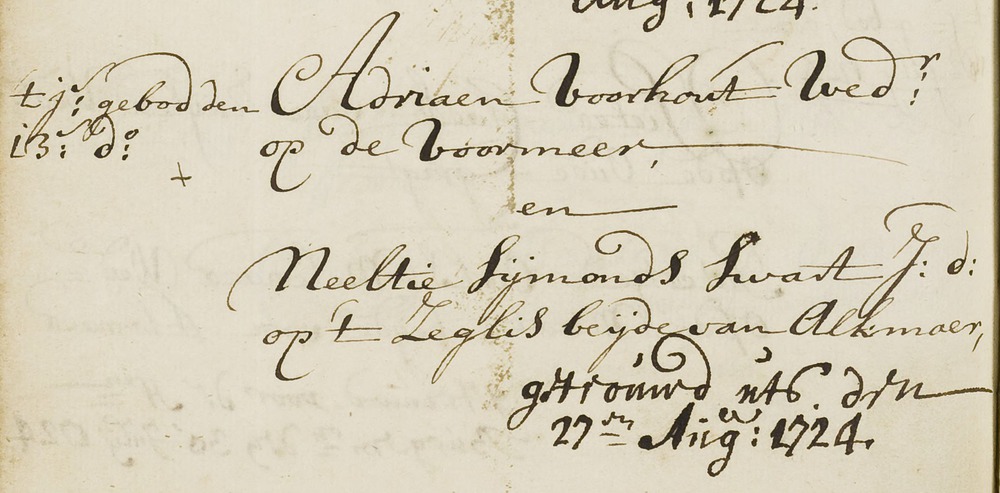 Aug: 1724.
t js: gebodden Adriaen Voorhout Wedr:
13: do: op de Voormeer,
+
en
Neeltie Sijmonds Swart J: d:
op 't Zeglis beijde van Alkmaer,
getrouwd uts. den
27en Aug: 1724.